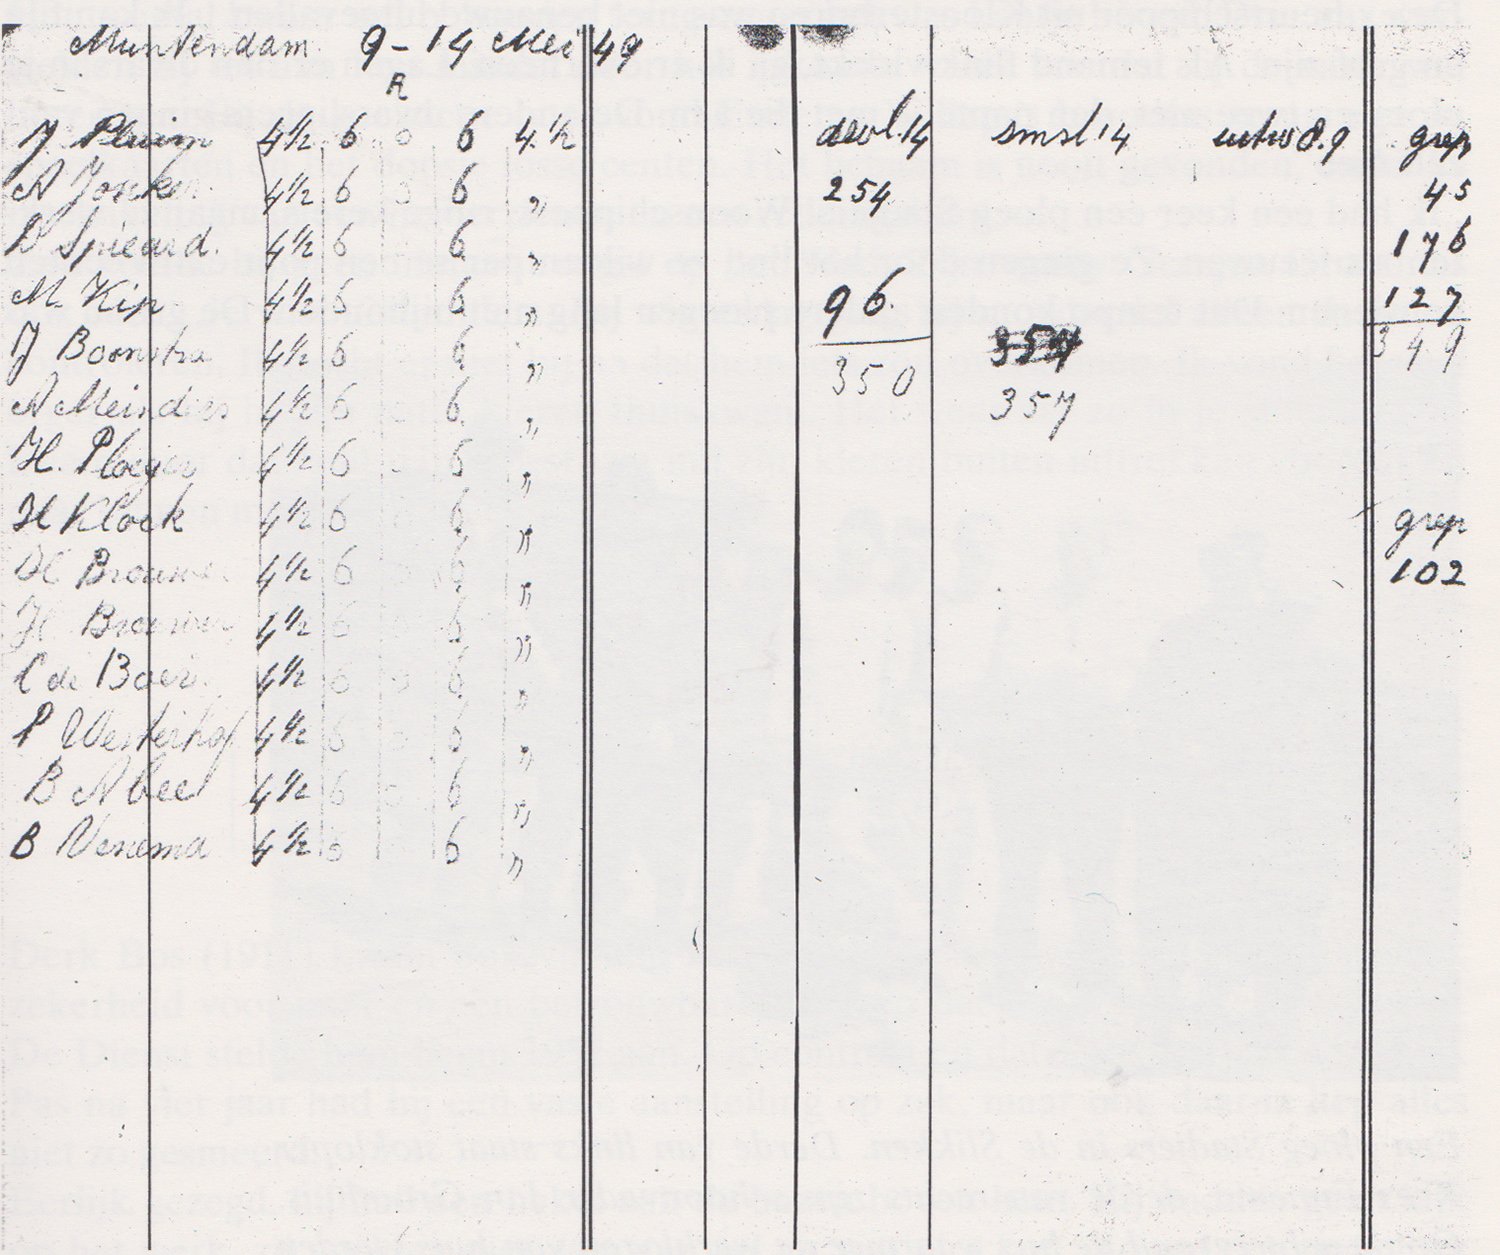 Muntendam 9-14 Mei 49
R
J Pluim 4½ 6 0 6 4.½ devl.14 smsl '14 grep
A Jonker 4½ 6 0 6 " 254 45
D Spieard. 4½ 6 6 " 176
M. Kip 4½ 6 6 " 96. 127
J Boonstra 4½ 6 6 " 350 349
A Meindies 4½ 6 0 6. " 357
H. Ploeger 4½ 6 0 6 "
H Klock 4½ 6 0 6 " grep
H Brouwer 4½ 6 0 6 " 102
H Brouwer 4½ 6 0 6 "
C de Boer. 4½ 6 0 6 "
P Westerhof 4½ 6 0 6 "
B Abee 4½ 6 0 6 "
B Venema 4½ 6 6 "